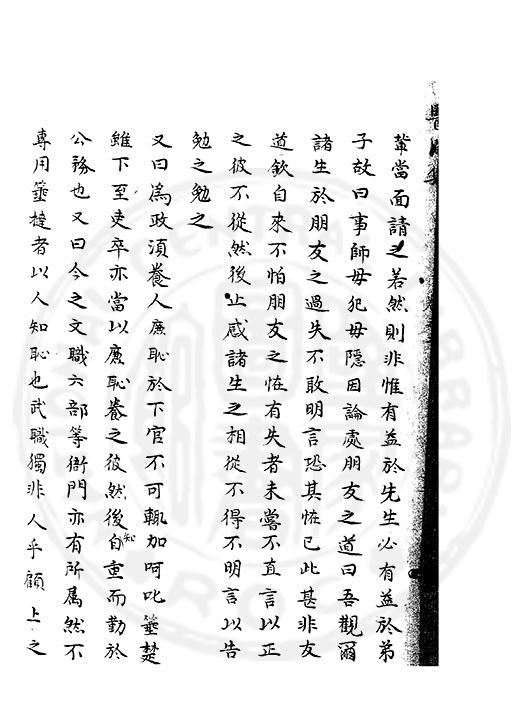 輩當面請之若然則非惟有益於先生必有益於弟
子故曰事師毋犯毋隱因論處朋友之道曰吾觀爾
諸生於朋友之過失不敢明言恐其恠已此甚非友
道欽自來不怕朋友之恠有失者未嘗不直言以正
之彼不從然後止感諸生之相從不得不明言以告
勉之勉之
又曰為政湏養人廉恥於下官不可輙加呵叱箠楚
雖下至吏卒亦當以廉恥養之彼然後自知重而勤於
公務也又曰今之文職六部等衙門亦有所屬然不
專用箠撻者以人知恥也武職獨非人乎顧上之